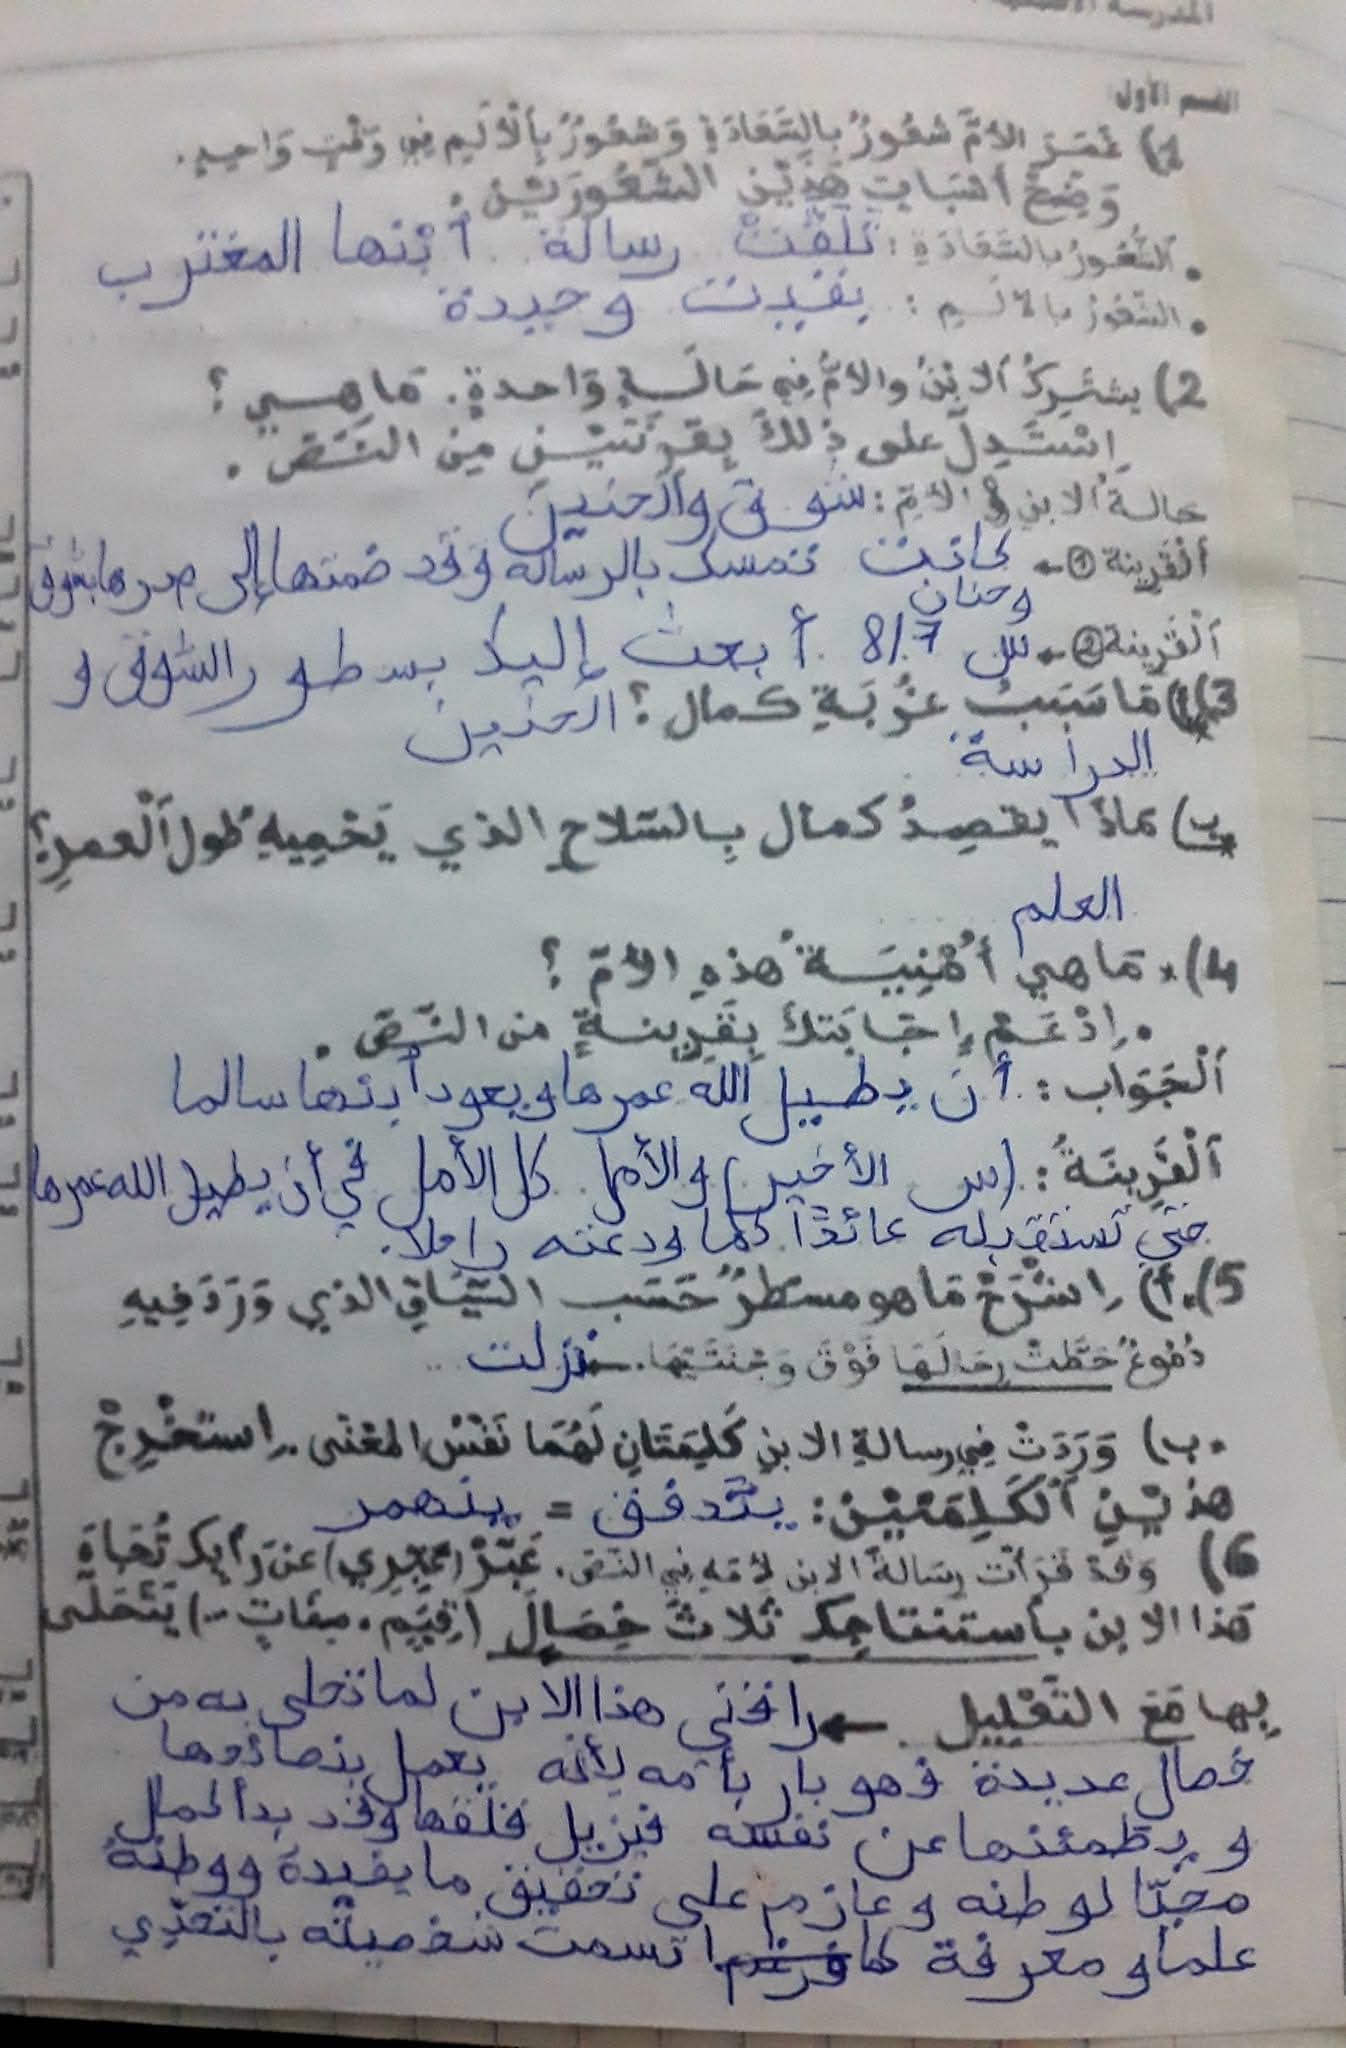 القسم الأول
1) غَمَرَ الأمَّ شعُورٌ بِالسَّعَادَةِ وَشعُورٌ بِالْأَلَمِ فِي وَقْتٍ وَاحِدٍ.
وَضِّحْ أسْبَابَ هَذَيْنِ الشّعُورَيْنِ.
. الشّعُورُ بالسَّعَادَةِ: تَلَقَّتْ رسالة ابنها المغترب
. الشّعُورُ بالألَمِ: بقيت وحيدة
2) يشتَرِكُ الابْنُ والأمُّ فِي حَالَةٍ وَاحدةٍ. مَا هِيَ؟
اِسْتَدِلَّ على ذلكَ بِقَرِنَتَيْنِ مِنَ النَّصّ.
حالةُ الابنِ و الأمّ: شوق والحنين
القَرِينة ① ← كانت تمسك بالرسالة وقد ضمتها إلى صدرها بشوق
وحنان
القَرِينة ② ← س 8/7 أبعث إليك بسطور الشوق و
الحنين
3) أ) مَا سَبَبُ غُرْبَةِ كمال؟
الدراسة
ب) مَاذَا يقصِدُ كمال بِالسّلاحِ الذي يَحْمِيهِ طول العمرِ؟
العلم
4) . مَا هِيَ أُمْنِيَةُ هذهِ الأمّ؟
. اِدْعَمْ إِجَابَتَكَ بِقَرِينةٍ من النَّصّ.
الْجَوَاب: أن يطيل الله عمرها ويعود أبنها سالما
الْقَرِينَةُ: (س الأخير) والأمل كل الأمل في أن يطيل الله عمرها
حتى تستقبله عائدًا كما ودعته راحلا.
5) أ) اِشْرَحْ مَا هو مسَطّرٌ حَسَب السّيَاقِ الذي وَرَدَ فِيهِ
دُمُوعٌ حَطَّتْ رِحَالَهَا فَوْقَ وَجْنَتَيْهَا. ← نزلت
ب) وَرَدَتْ فِي رسالةِ الابنِ كَلِمَتَانِ لَهُمَا نَفْسُ المعْنَى. اِستخْرِجْ
هذيْنِ الْكَلِمَتَيْنِ: يتدفق = ينهمر
6) وَقَدْ قَرَأتَ رِسَالةَ الابنِ لأمّهِ فِي النَّصّ. عَبِّرْ (عَبِّرِي) عَنْ رَأيِكَ تُجَاهَ
هَذا الابن بِاستنتاجِكَ ثَلاثَ خِصَالٍ (قِيَم، صِفَاتٍ ...) يَتَحَلَّى
بِها مَعَ التَّعْلِيل. ← راقني هذا الابن لما تحلى به من
خصال عديدة فهو بار بأمه لأنه يعمل بنصائحها
و يطمئنها عن نفسه فيزيل قلقها وقد بدأ لكمال
محبًا لوطنه و عازم على تحقيق ما يفيده ووطنه
علما و معرفة كما اتسمت شخصيته بالتحدّي